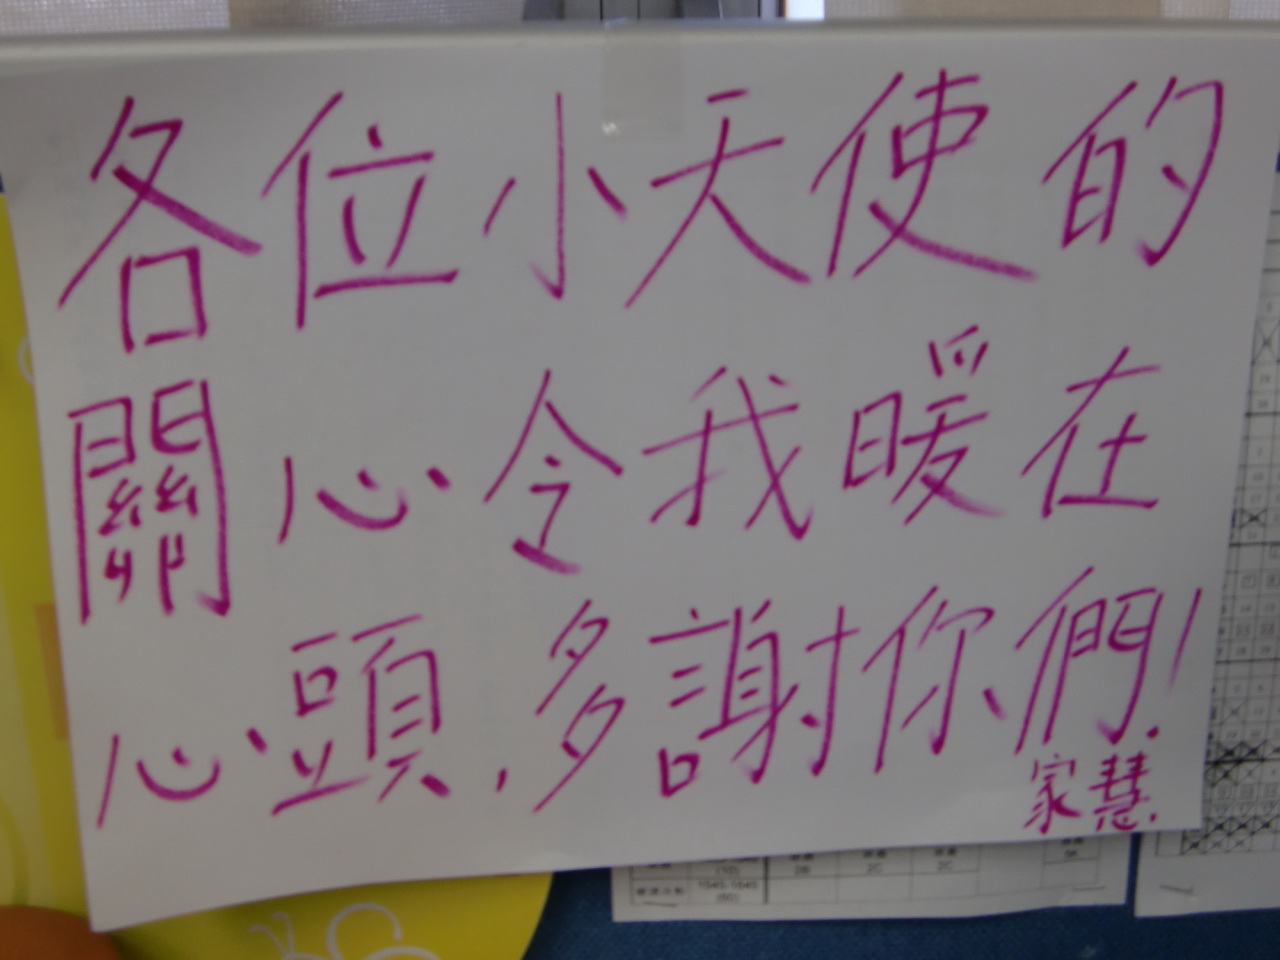 各位小天使的
關心令我暖在
心頭,多謝你們!
家慧
1545-1645
2B
2C
2C